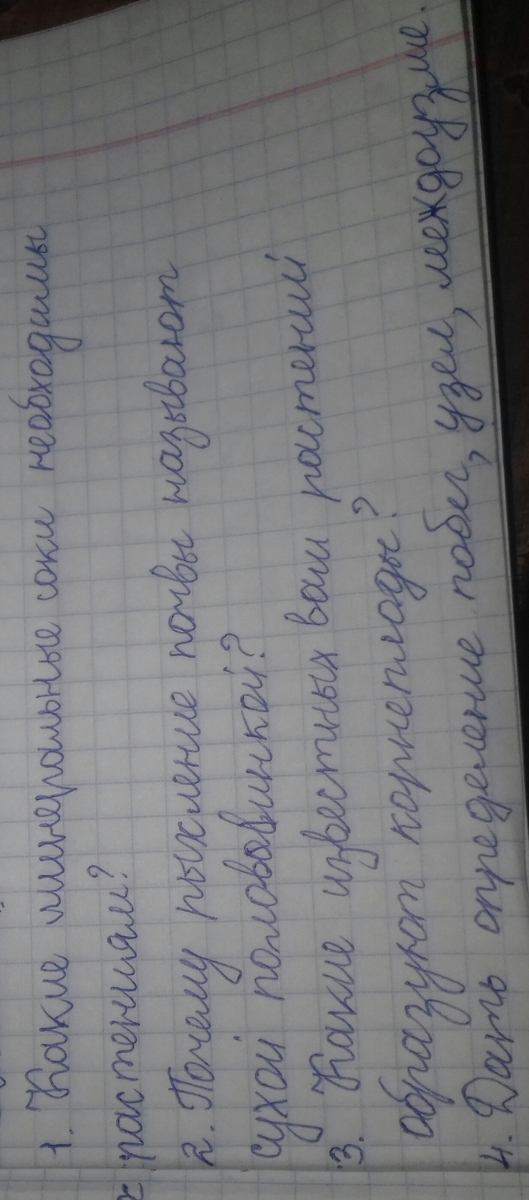 1. Какие минеральные соки необходимы
растениям?
2. Почему рыхление почвы называют
сухой половинкой?
3. Какие известных вам растений
образуют корнеплоды?
4. Дать определение побег, узел, междоузлие.